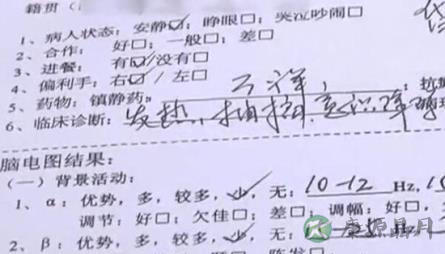 籍贯（
1、病人状态：安静☑；睁眼□；哭泣吵闹□
2、合作： 好□；一般□；差□
3、进餐： 有☑没有□
4、偏利手：右☑/左□
5、药物：镇静药： 不详， ；抗
6、临床诊断：发热，抽搐，意识障碍
脑电图结果：
（一）背景活动：
1、α：优势，多，较多，少，无；10-12 Hz，
调节：好□；欠佳□；差□；调幅：好□，
2、β：优势，多，较多，少，无；
康源鼎月